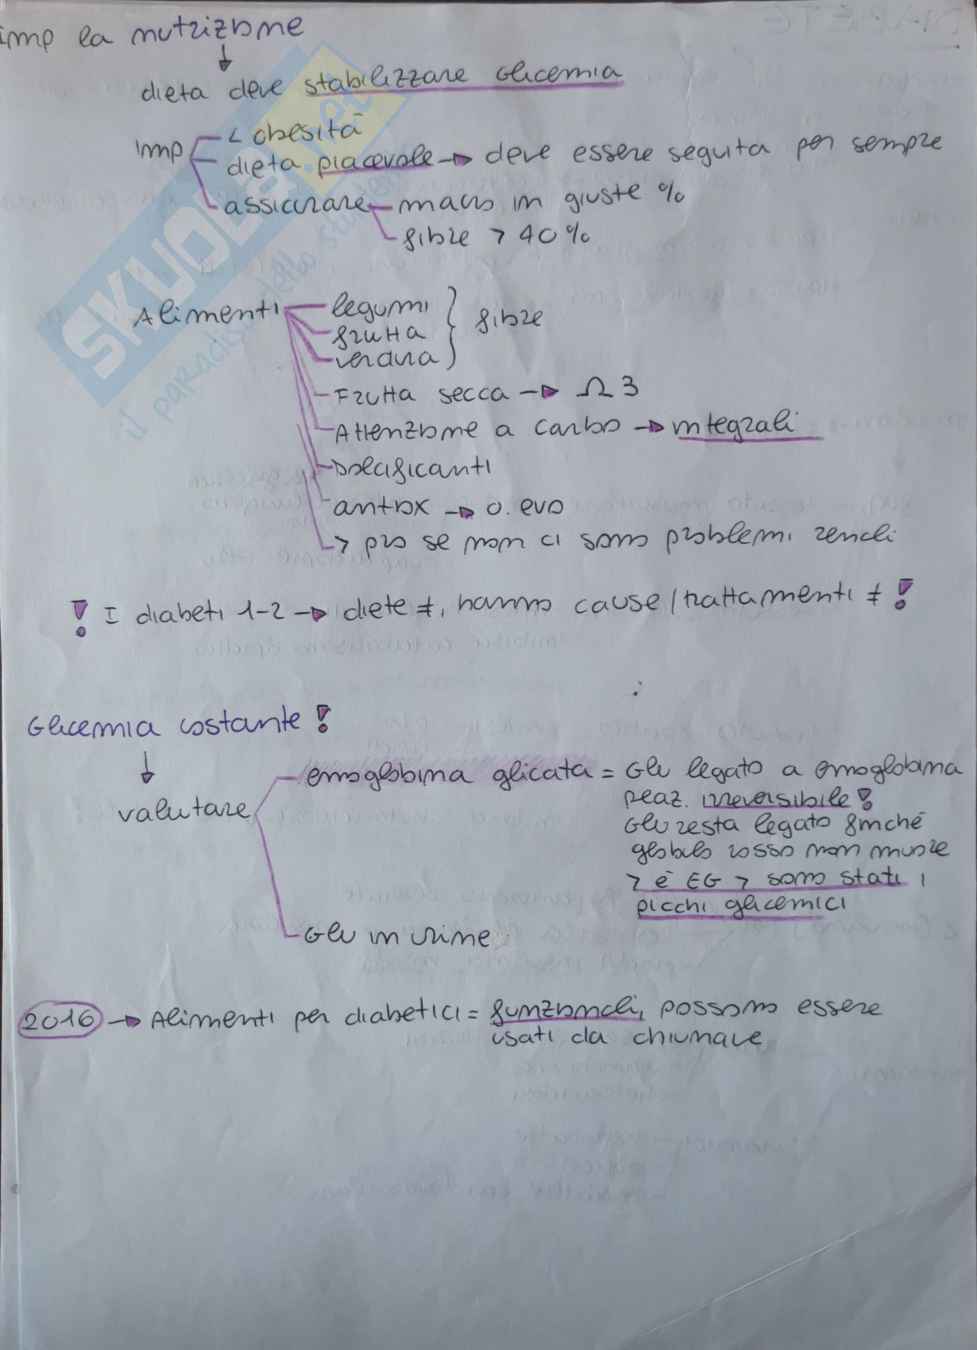 imp la nutrizione
↓
dieta deve stabilizzare glicemia
imp < obesità
dieta piacevole → deve essere seguita per sempre
assicurare macro in giuste %
fibre > 40%
Alimenti legumi } fibre
frutta
verdura
Frutta secca → Ω3
Attenzione a carbo → integrali
Dolcificanti
antiox → o. evo
> pro se non ci sono problemi renali
! I diabeti 1-2 → diete ≠, hanno cause/trattamenti ≠ !
Glicemia costante !
↓
valutare emoglobina glicata = Glu legato a emoglobina
reaz. irreversibile !
Glu resta legato finché
globulo rosso non muore
> è EG > sono stati i
picchi glicemici
Glu in urine
2016 → Alimenti per diabetici = funzionali, possono essere
usati da chiunque
SKUOLA.net
il paradiso dello studente